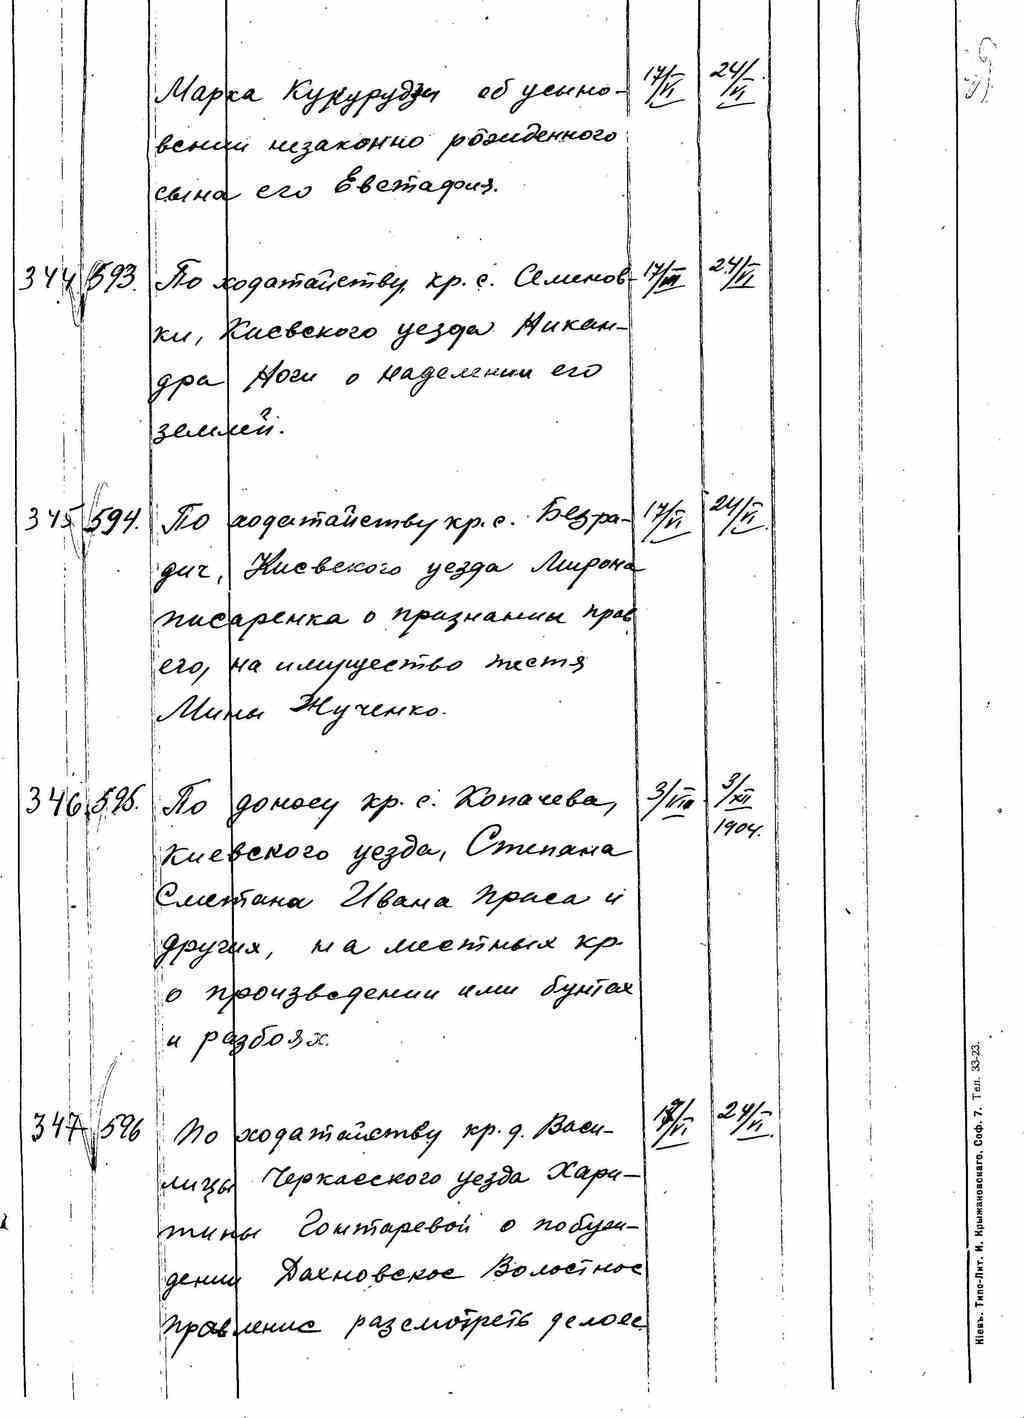 Марка Кукурудзы об усыно- 17/VI 24/VI
влении незаконно рожденного
сына его Евстафия.
344 593. По ходатайству кр. с. Семенов- 17/VI 24/VI
ки, Киевского уезда Никан-
дра Ноги о наделении его
землей.
345 594. По ходатайству кр. с. Безра- 17/VI 24/VI
дич, Киевского уезда Мирона
Писаренка о признании прав
его, на имущество тестя
Мины Жученко.
346 595. По доносу кр. с. Копачева, 3/VIII 3/XII
1904.
Киевского уезда, Степана
Сметана Ивана Праса и
других, на местных кр.
о произведении ими бунтах
и разбоях.
347 596 По ходатайству кр. д. Васи- 17/VI 24/VI
лицы Черкасского уезда Хари-
тины Гонтаревой о побуж-
дении Дахновское Волостное
правление разсмотреть дело ее
Кіевъ. Типо-Лит. И. Крыжановскаго. Соф. 7. Тел. 33-23.